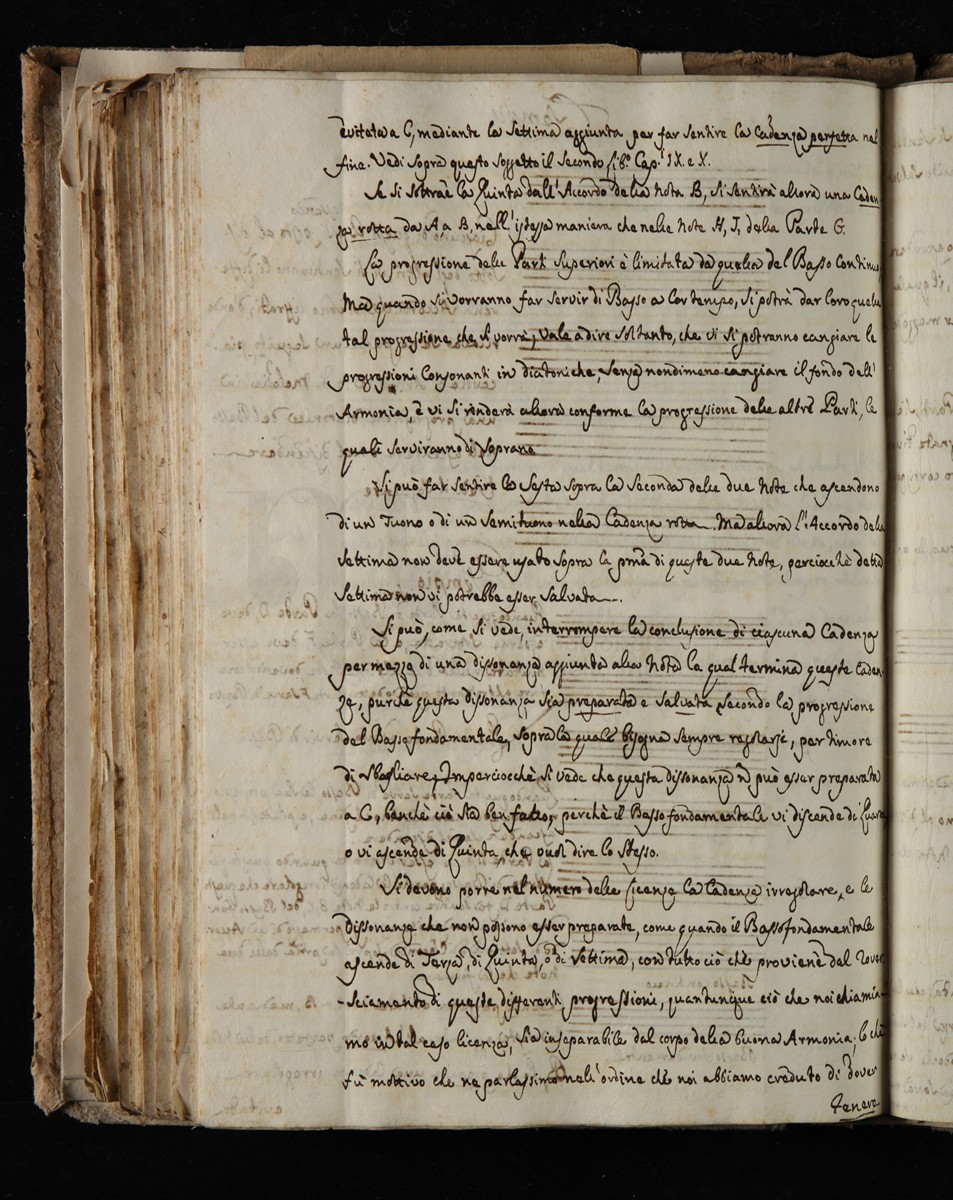 evitata a C, mediante la Settima aggiunta per far sentire la Cadenza perfetta nel
fine. Vedi sopra questo soggetto il Secondo Lib.º Cap.º IX. e X.
Se si sottrae la Quinta dall'Accordo della Nota B, si sentirà allora una Caden
za rotta da A, a B, nell'istessa maniera che nelle Note H, J, della Parte G.
La progressione delle Parti Superiori è limitata da quella del Basso Continuo
Ma quando si vorranno far servir di Basso a lor tempo, si potrà dar loro quella
tal progressione che si vorrà, vale a dire soltanto, che vi si potranno cangiare le
progressioni Consonanti in diatoniche, senza nondimeno cangiare il fondo dell'
Armonia, e vi si renderà allora conforme la progressione delle altre Parti, le
quali serviranno di Soprano.
Si può far sentire la Sesta sopra la Seconda delle due Note che ascendono
di un Tuono o di un Semituono nella Cadenza rotta. Ma allora l'Accordo della
Settima non deve essere usato sopra la pma di queste due Note, perciocchè detta
Settima non vi potrebbe esser Salvata.
Si può, come si vede, interrompere la conclusione di ciascuna Cadenza
per mezzo di una dissonanza aggiunta alla Nota la qual termina queste Caden
ze, purchè questa dissonanza sia preparata e salvata secondo la progressione
del Basso fondamentale, sopra la quale bisogna sempre regolarsi, per timore
di Sbagliare. Imperciocchè si vede che questa dissonanza ñ può esser preparata
a C, benchè ciò sia ben fatto, perchè il Basso fondamentale vi discende di Quarta
o vi ascende di Quinta, che vuol dire lo stesso.
Si devono porre nel numero delle licenze la Cadenza irregolare, e le
dissonanze che non possono esser preparate, come quando il Basso fondamentale
ascende di Terza, di Quinta, o di Settima, con tutto ciò che proviene dal Rove
sciamento di queste differenti progressioni, quantunque ciò che noi chiamia
mo in tal caso licenza, sia inseparabile dal corpo della buona Armonia; lo che
fù mottivo che ne parlassimo nell'ordine che noi abbiamo creduto di dover
tenere